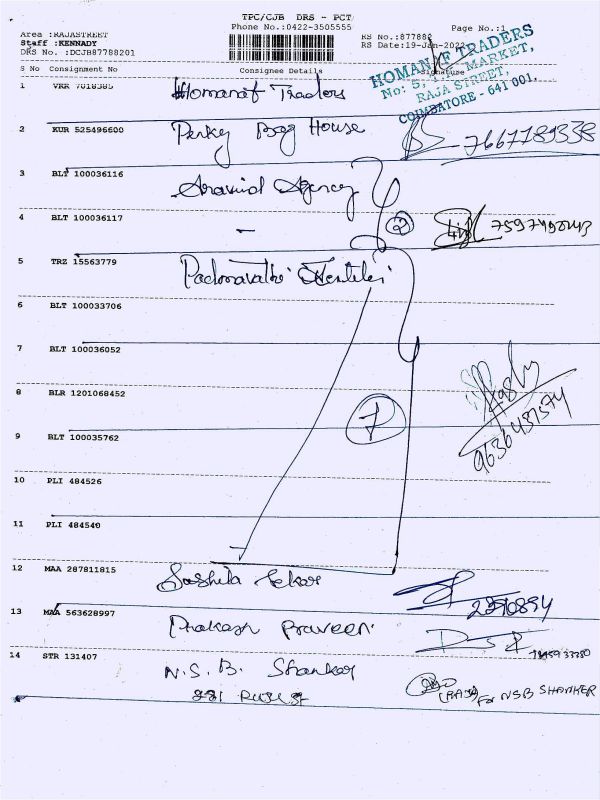 TPC/CJB DRS - PCT
Phone No.:0422-3505555
Page No.:1
Area :RAJASTREET
Staff :KENNADY
DRS No. :DCJB87788201
RS No.:877882
RS Date:19-Jan-2022
S No Consignment No Consignee Details Signature
HOMANAF TRADERS
No: 5, MARKET,
RAJA STREET,
COIMBATORE - 641 001.
1 VRR 7018385 Homanaf Traders
2 KUR 525496600 Perky Bag House 7667189338
3 BLT 100036116 Aravind Agency
4 BLT 100036117 - 2
5 TRZ 15563779 Padmavathi Textiles
6 BLT 100033706
7 BLT 100036052
8 BLR 1201068452 7
9 BLT 100035762 9636437574
10 PLI 484526
11 PLI 484540
12 MAA 287811815 Sashila Sekar
13 MAA 563628997 Prakash Praveen
14 STR 131407 N.S.B. Shankar
For NSB SHANKER